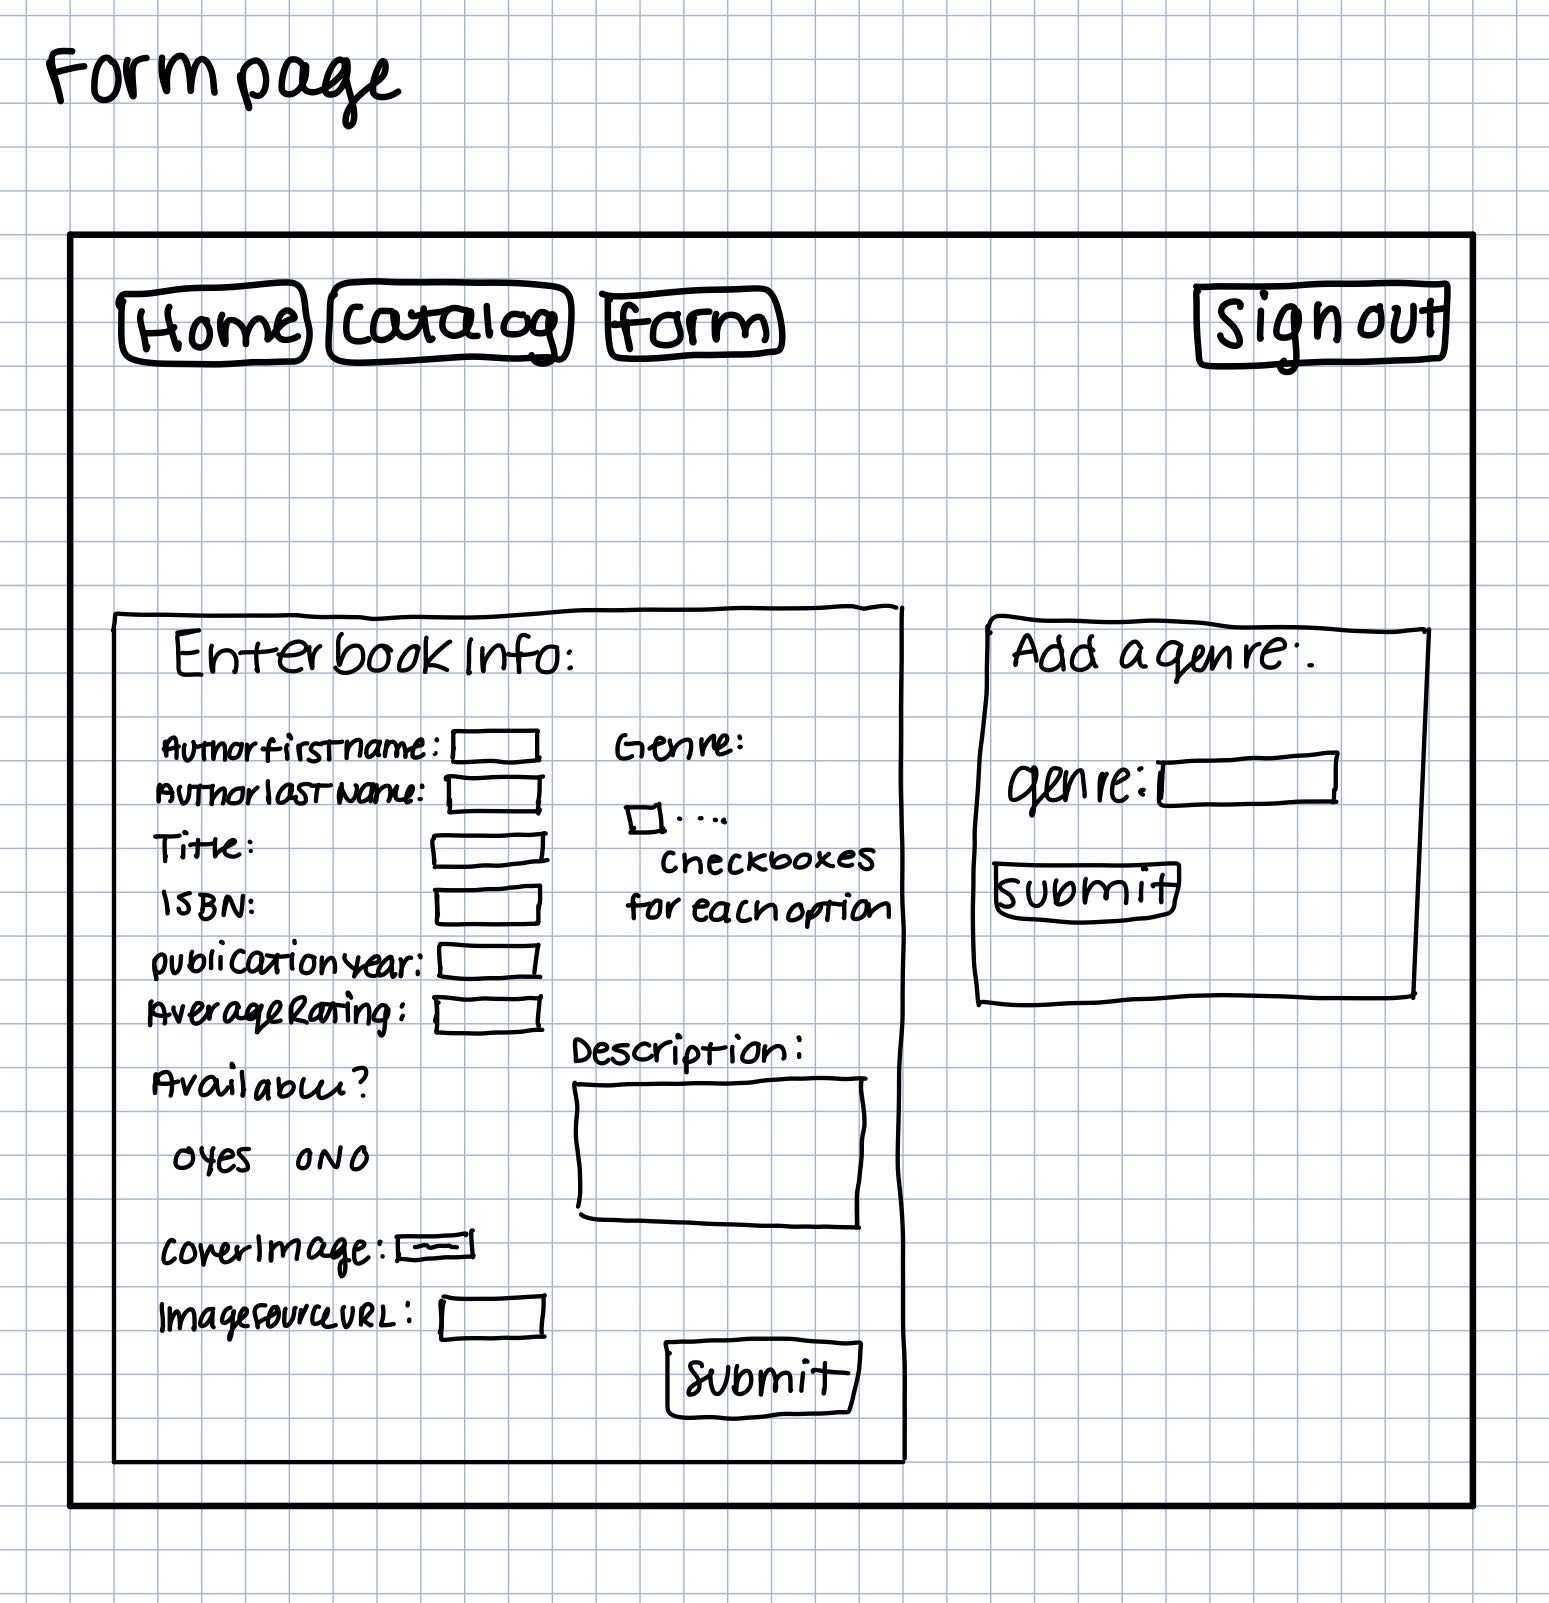 Form page
Home Catalog form Sign out
Enter book Info:
Author first name:
Author last Name:
Title:
ISBN:
publication year:
Average Rating:
Available?
o yes o NO
cover Image:
Image source URL:
Genre:
....
checkboxes
for each option
Description:
submit
Add a genre:
genre:
submit